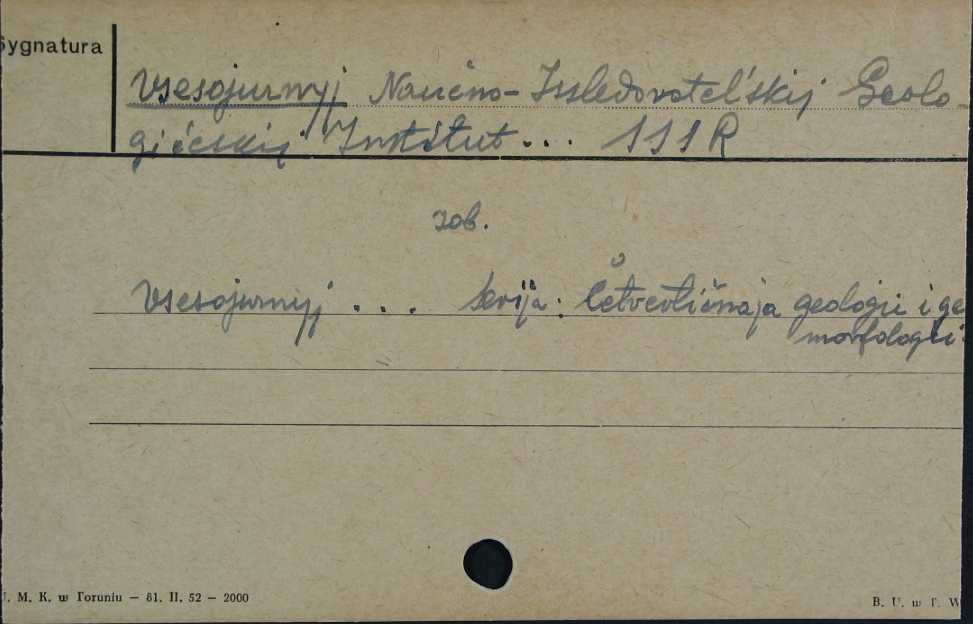 Sygnatura
Vsesojuznyj Naučno-Issledovatel'skij Geolo-
gičeskij Institut... 111R
zob.
Vsesojuznyj ... Serija: Četvertičnaja geologii i ge
morfologii
J. M. K. w Toruniu — 81. II. 52 — 2000
B. U. w T. W